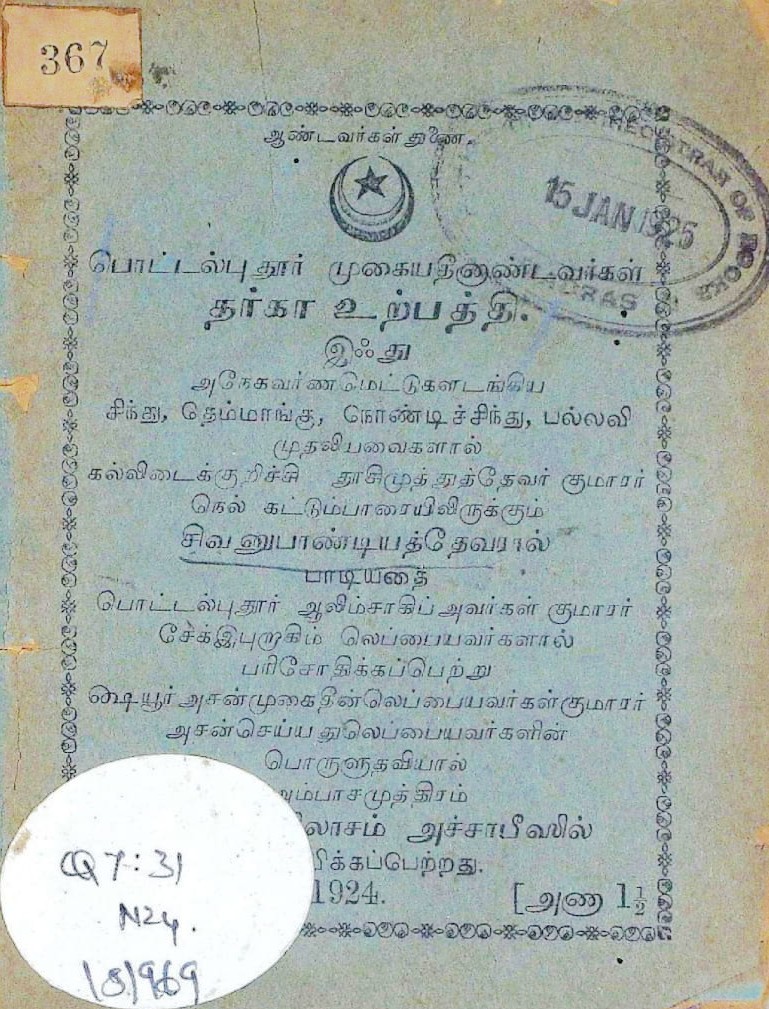 367
ஆண்டவர்கள் துணை.
REGISTRAR OF BOOKS
15 JAN 1925
பொட்டல்புதூர் முகையதீனாண்டவர்கள்
தர்கா உற்பத்தி.
இஃது
அநேகவர்ணமெட்டுகளடங்கிய
சிந்து, தெம்மாங்கு, நொண்டிச்சிந்து, பல்லவி
முதலியவைகளால்
கல்லிடைக்குறிச்சி தூசிமுத்துத்தேவர் குமாரர்
நெல் கட்டும்பாரையிலிருக்கும்
சிவனுபாண்டியத்தேவரால்
பாடியதை
பொட்டல்புதூர் ஆலிம்சாகிப் அவர்கள் குமாரர்
சேக்இபுறாகிம் லெப்பையவர்களால்
பரிசோதிக்கப்பெற்று
ஷையூர் அசன்முகைதீன்லெப்பையவர்கள்குமாரர்
அசன்செய்யதுலெப்பையவர்களின்
பொருளுதவியால்
அம்பாசமுத்திரம்
லாசம் அச்சாபீஸில்
விக்கப்பெற்றது.
1924. [அணா 1½
Q 7:31
N24.